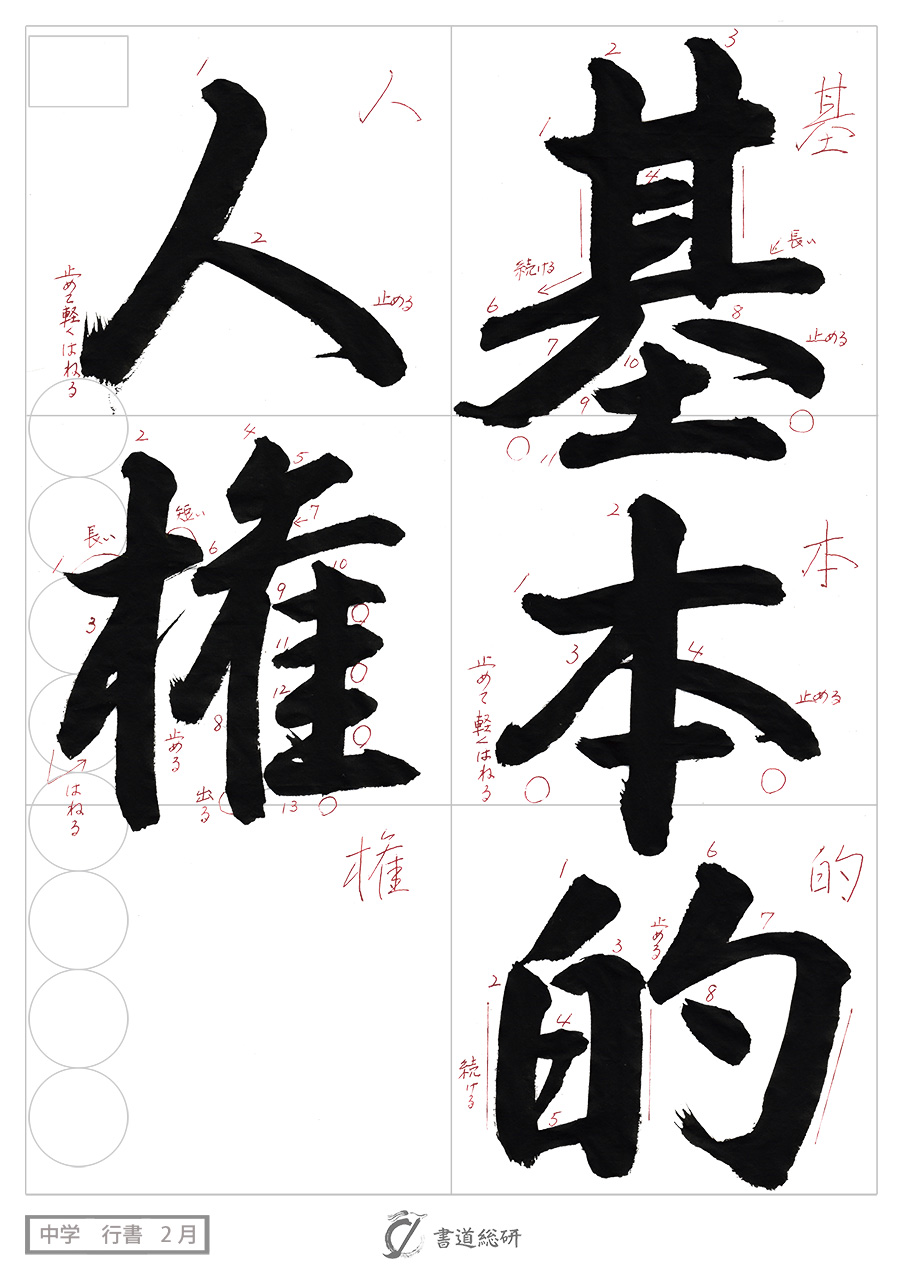 基本的
人権
基
3
2
1
4
長い
続ける
6
8
止める
7
10
9
11
本
2
1
3
4
止めて軽くはねる
止める
的
1
6
止める
7
3
2
8
4
続ける
5
人
1
2
止める
止めて軽くはねる
2
4
5
短い
長い
7
1
6
10
9
3
11
12
8
止める
はねる
出る
13
権
中学 行書 2月
書道総研